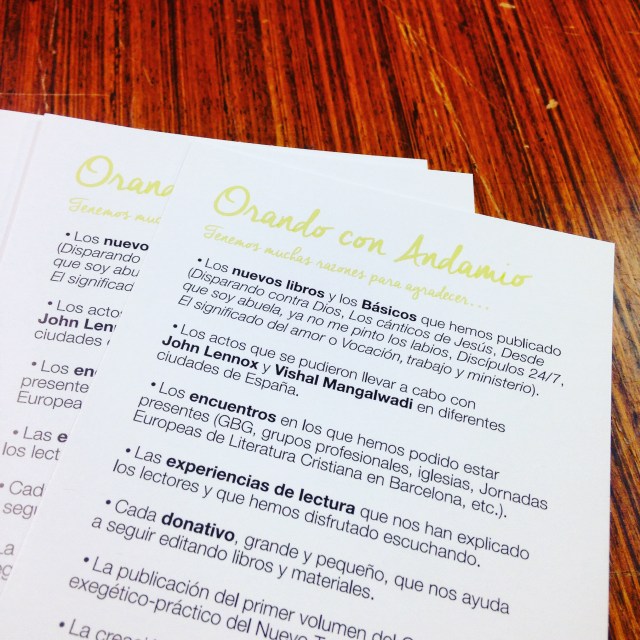 Orando con Andamio
Tenemos muchas razones para agradecer...
• Los nuevos libros y los Básicos que hemos publicado
(Disparando contra Dios, Los cánticos de Jesús, Desde
que soy abuela, ya no me pinto los labios, Discípulos 24/7,
El significado del amor o Vocación, trabajo y ministerio).
• Los actos que se pudieron llevar a cabo con
John Lennox y Vishal Mangalwadi en diferentes
ciudades de España.
• Los encuentros en los que hemos podido estar
presentes (GBG, grupos profesionales, iglesias, Jornadas
Europeas de Literatura Cristiana en Barcelona, etc.).
• Las experiencias de lectura que nos han explicado
los lectores y que hemos disfrutado escuchando.
• Cada donativo, grande y pequeño, que nos ayuda
a seguir editando libros y materiales.
• La publicación del primer volumen del
exegético-práctico del Nuevo
• La
Orana
Tenemos muc
• Los nuevo
(Disparando
que soy abu
El significado
• Los actos
John Len
ciudades
• Los en
presente
Europea
• Las e
los lect
• Cad
segu